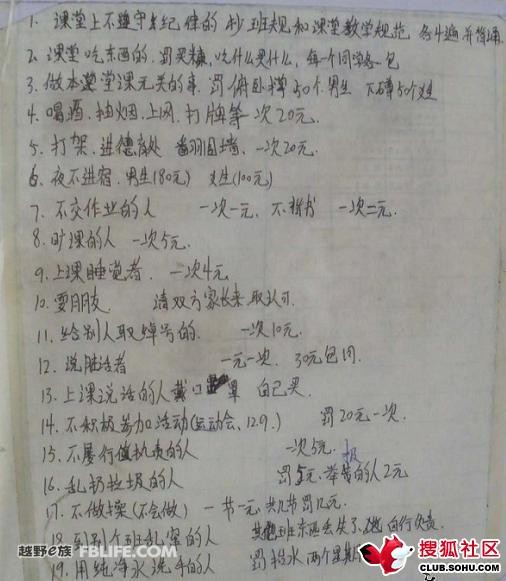 1. 课堂上不遵守纪律的 抄班规和课堂教学规范 各4遍 并背诵
2. 课堂吃东西的. 罚买糖, 吃什么买什么, 每个同学各一包
3. 做本堂课无关的事. 罚俯卧撑50个男生 下蹲50个女生
4. 喝酒. 抽烟. 上网. 打牌等一次20元.
5. 打架. 进德育处 翻围墙. 一次20元.
6. 夜不进宿. 男生(80元) 女生(100元)
7. 不交作业的人 一次一元. 不 一次二元.
8. 旷课的人 一次5元.
9. 上课睡觉者. 一次4元
10. 耍朋友. 请双方家长来 取认可.
11. 给别人取绰号的. 一次10元.
12. 说脏话者 一元一次. 30元包月.
13. 上课说话的人戴口罩 自己买.
14. 不积极参加活动(运动会、12.9.) 罚20元一次.
15. 不履行值执责的人 一次5元.
16. 乱扔垃圾的人 罚5元. 举报的人2元
17. 不做操(不会做) 一节一元. 共几节罚几元.
18. 到别个班乱窜的人 班东西丢失了, 自行负责.
19. 用纯净水洗手的人 罚抬水两个星期
越野e族 FBLIFE.COM
搜狐社区
CLUB.SOHU.COM